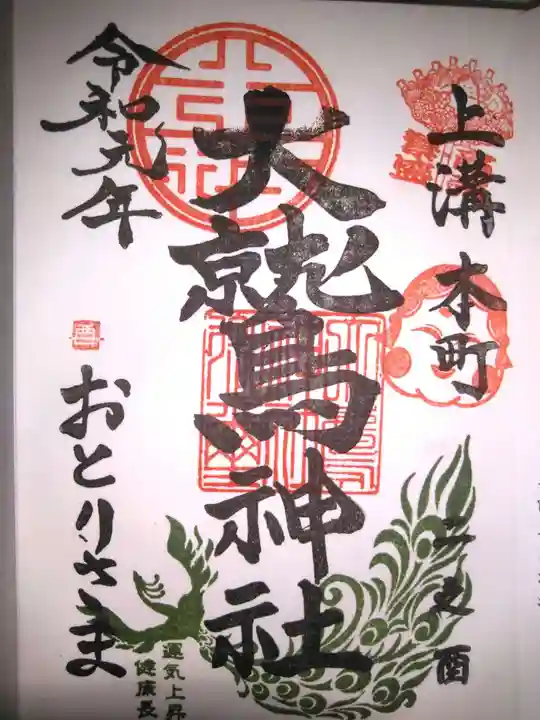 上溝
本町
二之酉
大鷲神社
令和元年
酉
おとりさま
運気上昇
健康長